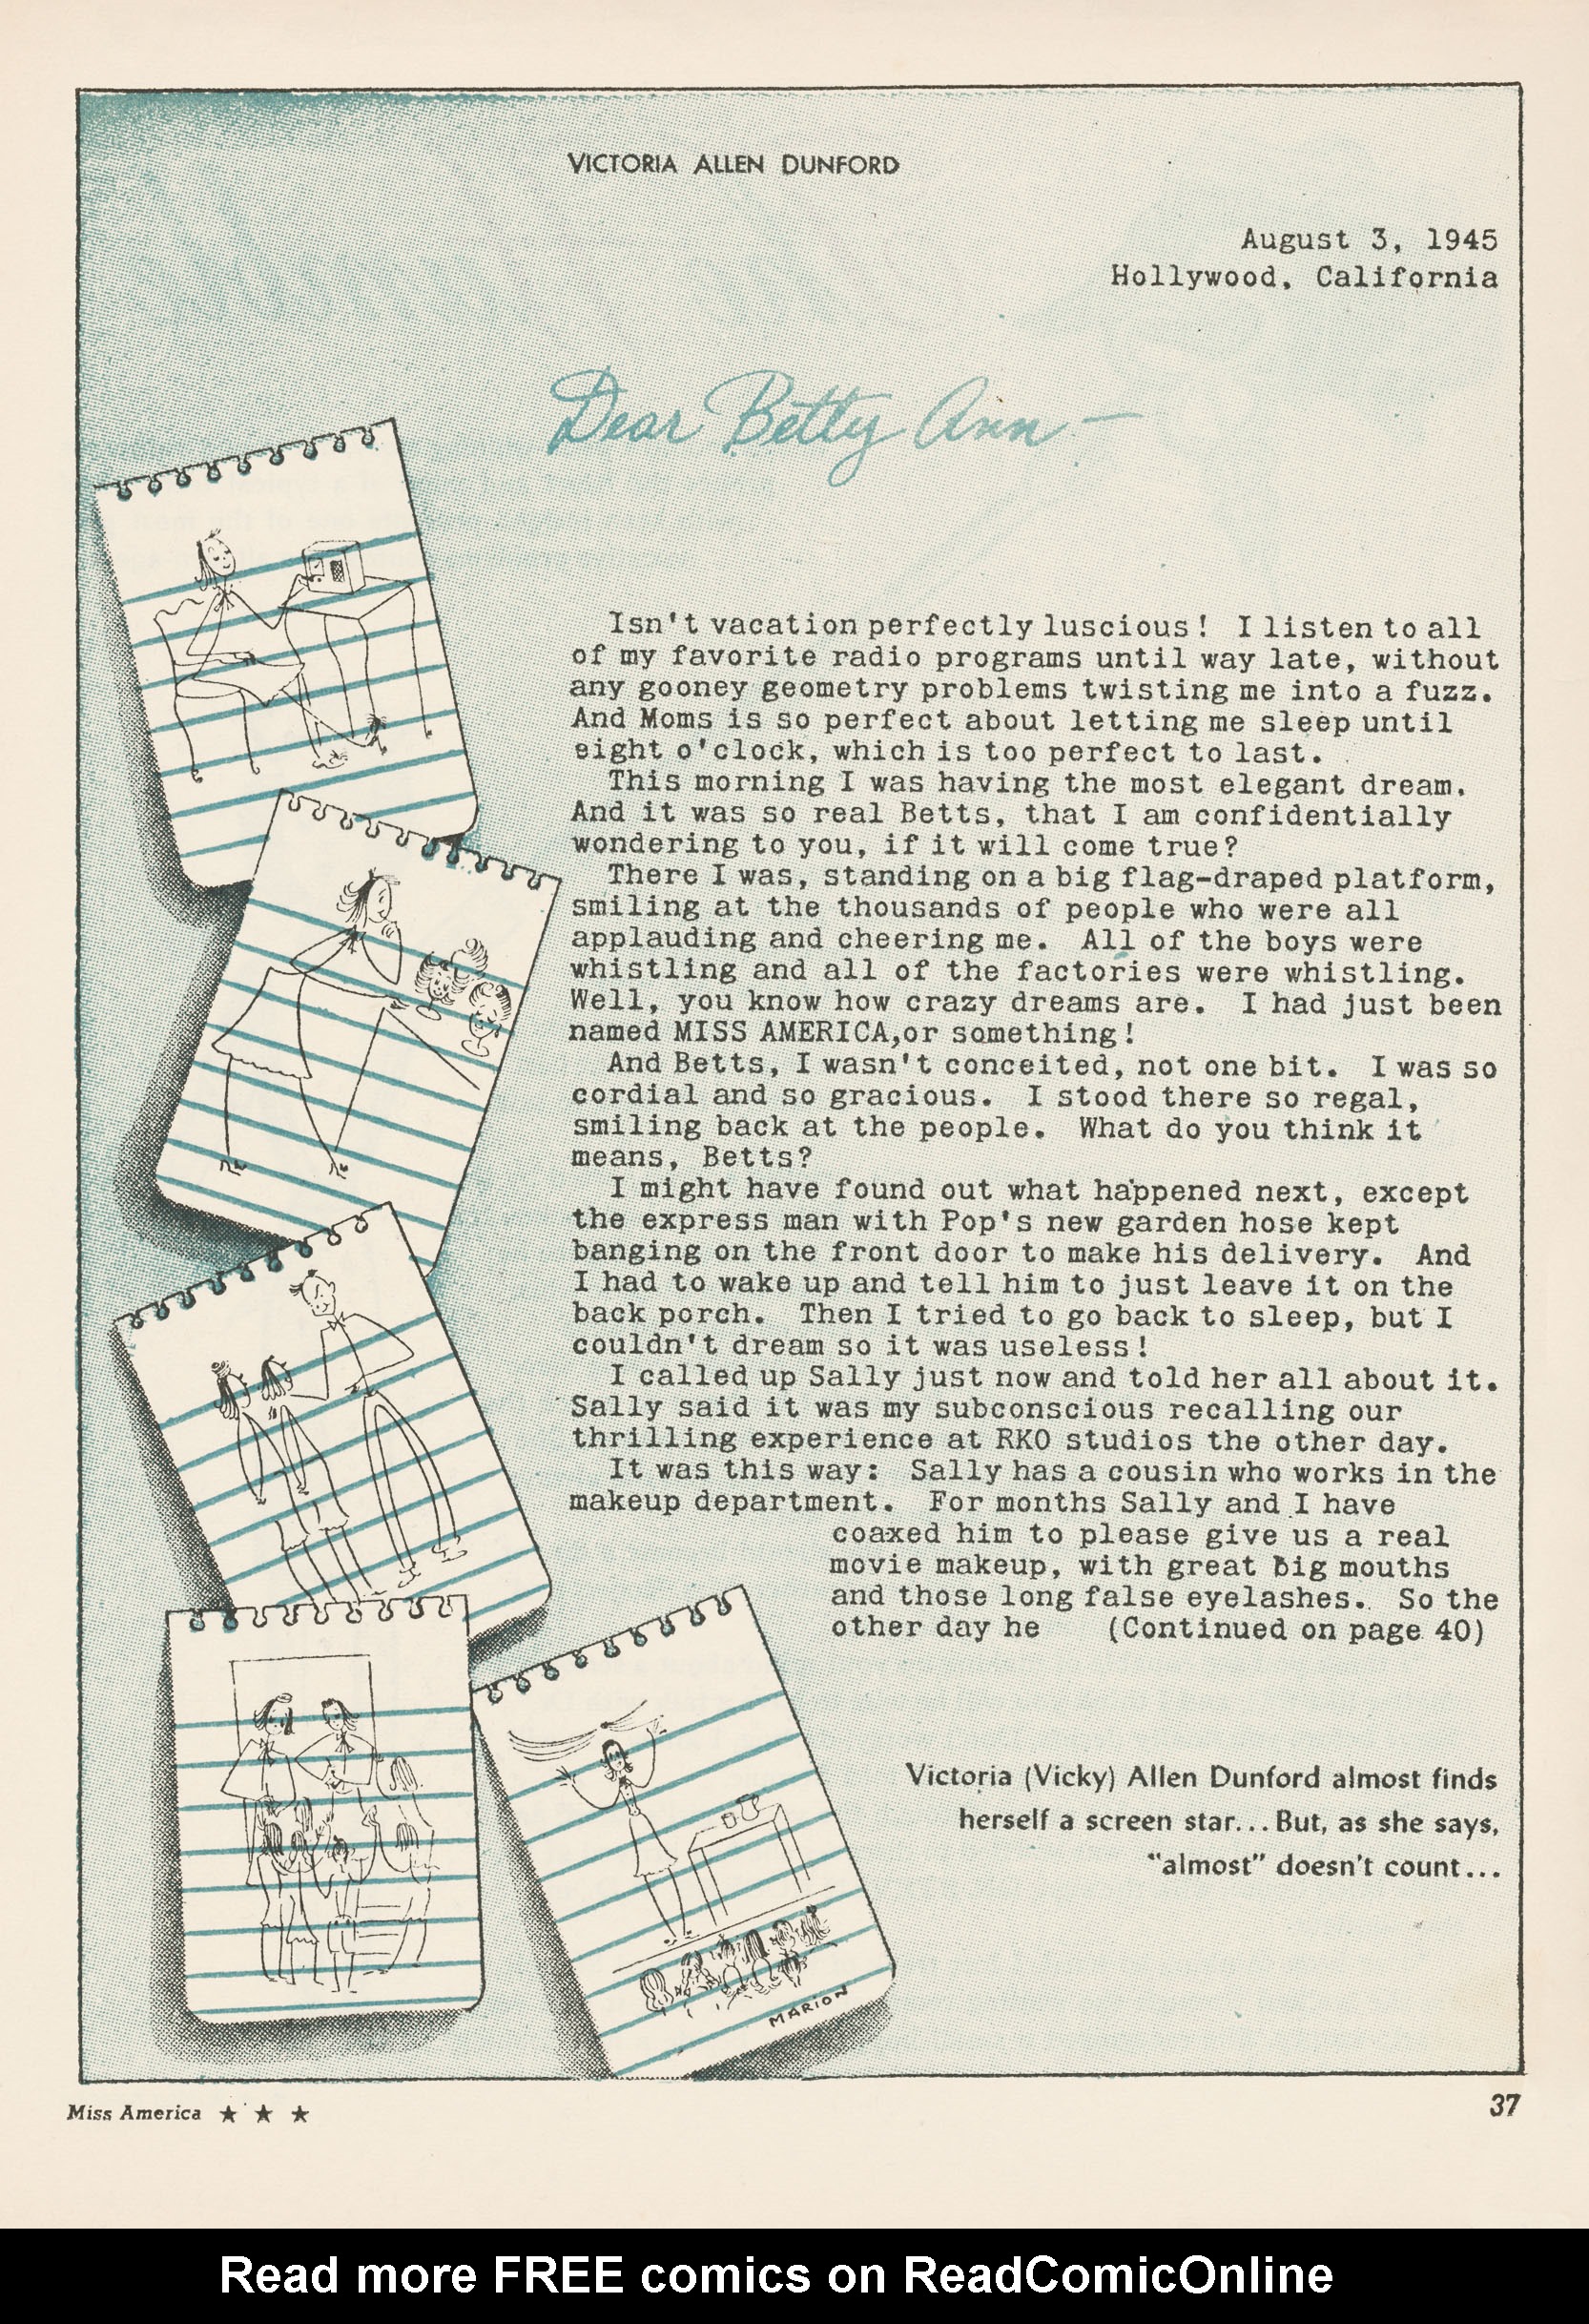 VICTORIA ALLEN DUNFORD
August 3, 1945
Hollywood, California
Dear Betty Ann —
Isn't vacation perfectly luscious! I listen to all
of my favorite radio programs until way late, without
any gooney geometry problems twisting me into a fuzz.
And Moms is so perfect about letting me sleep until
eight o'clock, which is too perfect to last.
This morning I was having the most elegant dream.
And it was so real Betts, that I am confidentially
wondering to you, if it will come true?
There I was, standing on a big flag-draped platform,
smiling at the thousands of people who were all
applauding and cheering me. All of the boys were
whistling and all of the factories were whistling.
Well, you know how crazy dreams are. I had just been
named MISS AMERICA,or something!
And Betts, I wasn't conceited, not one bit. I was so
cordial and so gracious. I stood there so regal,
smiling back at the people. What do you think it
means, Betts?
I might have found out what happened next, except
the express man with Pop's new garden hose kept
banging on the front door to make his delivery. And
I had to wake up and tell him to just leave it on the
back porch. Then I tried to go back to sleep, but I
couldn't dream so it was useless!
I called up Sally just now and told her all about it.
Sally said it was my subconscious recalling our
thrilling experience at RKO studios the other day.
It was this way: Sally has a cousin who works in the
makeup department. For months Sally and I have
coaxed him to please give us a real
movie makeup, with great big mouths
and those long false eyelashes. So the
other day he (Continued on page 40)
Victoria (Vicky) Allen Dunford almost finds
herself a screen star... But, as she says,
"almost" doesn't count...
MARION
Miss America ★ ★ ★
37
Read more FREE comics on ReadComicOnline